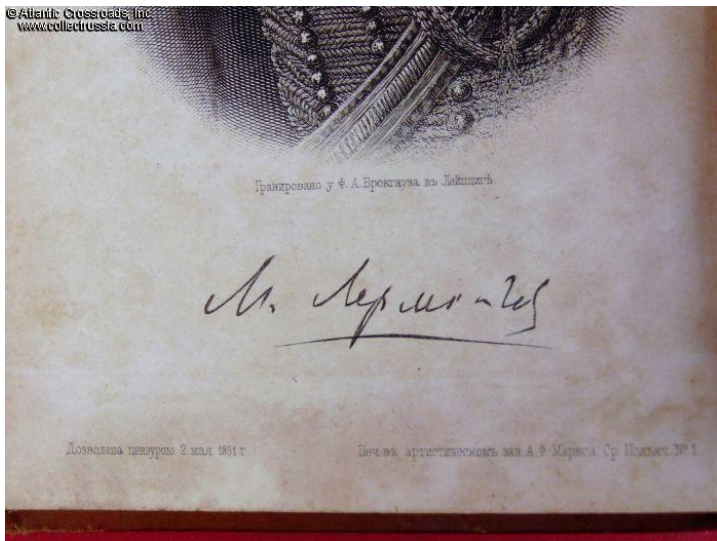 © Atlantic Crossroads, Inc.
www.collectrussia.com
Гравировано у Ф. А. Брокгауза въ Лейпцигѣ.
М. Лермонтов
Дозволена цензурою 2 мая 1891 г.
Печ. въ артистическомъ зав. А. Ф. Маркса, Ср. Подъяч. № 1.